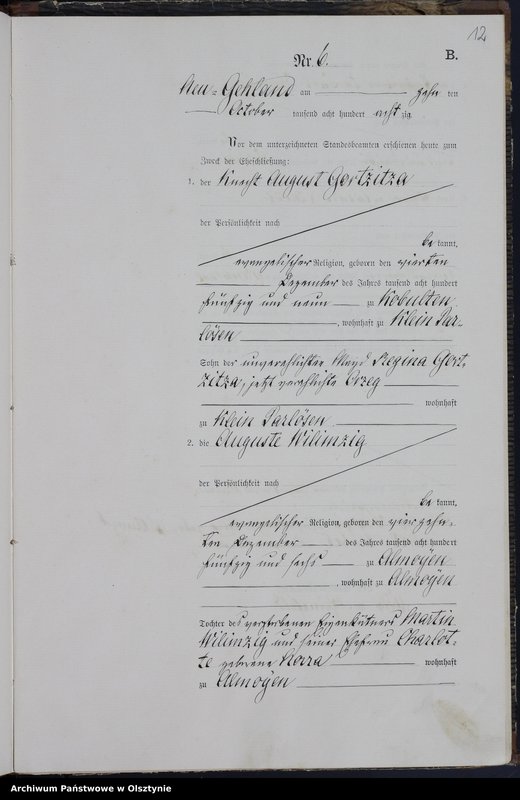 12
Nr. 6.
B.
Neu-Gehland am zehn ten
October tausend acht hundert acht zig
Vor dem unterzeichneten Standesbeamten erschienen heute zum
Zweck der Eheschließung:
1. der Knecht August Gortzitza
der Persönlichkeit nach
be kannt,
evangelischer Religion, geboren den vierten
Dezember des Jahres tausend acht hundert
fünfzig und neun zu Kobulten
, wohnhaft zu Klein Par-
lösen
Sohn der unverehlichten Magd Regina Gort-
zitza, jetzt verehlichte
wohnhaft
zu Klein Parlösen
2. die Auguste Wilimzig
der Persönlichkeit nach
be kannt,
evangelischer Religion, geboren den vierzehn-
ten Dezember des Jahres tausend acht hundert
fünfzig und sechs zu Almoyen
, wohnhaft zu Almoyen
Tochter des verstorbenen Eigenkätners Martin
Wilimzig und seiner Ehefrau Charlot-
te geborene wohnhaft
zu Almoyen
Archiwum Państwowe w Olsztynie